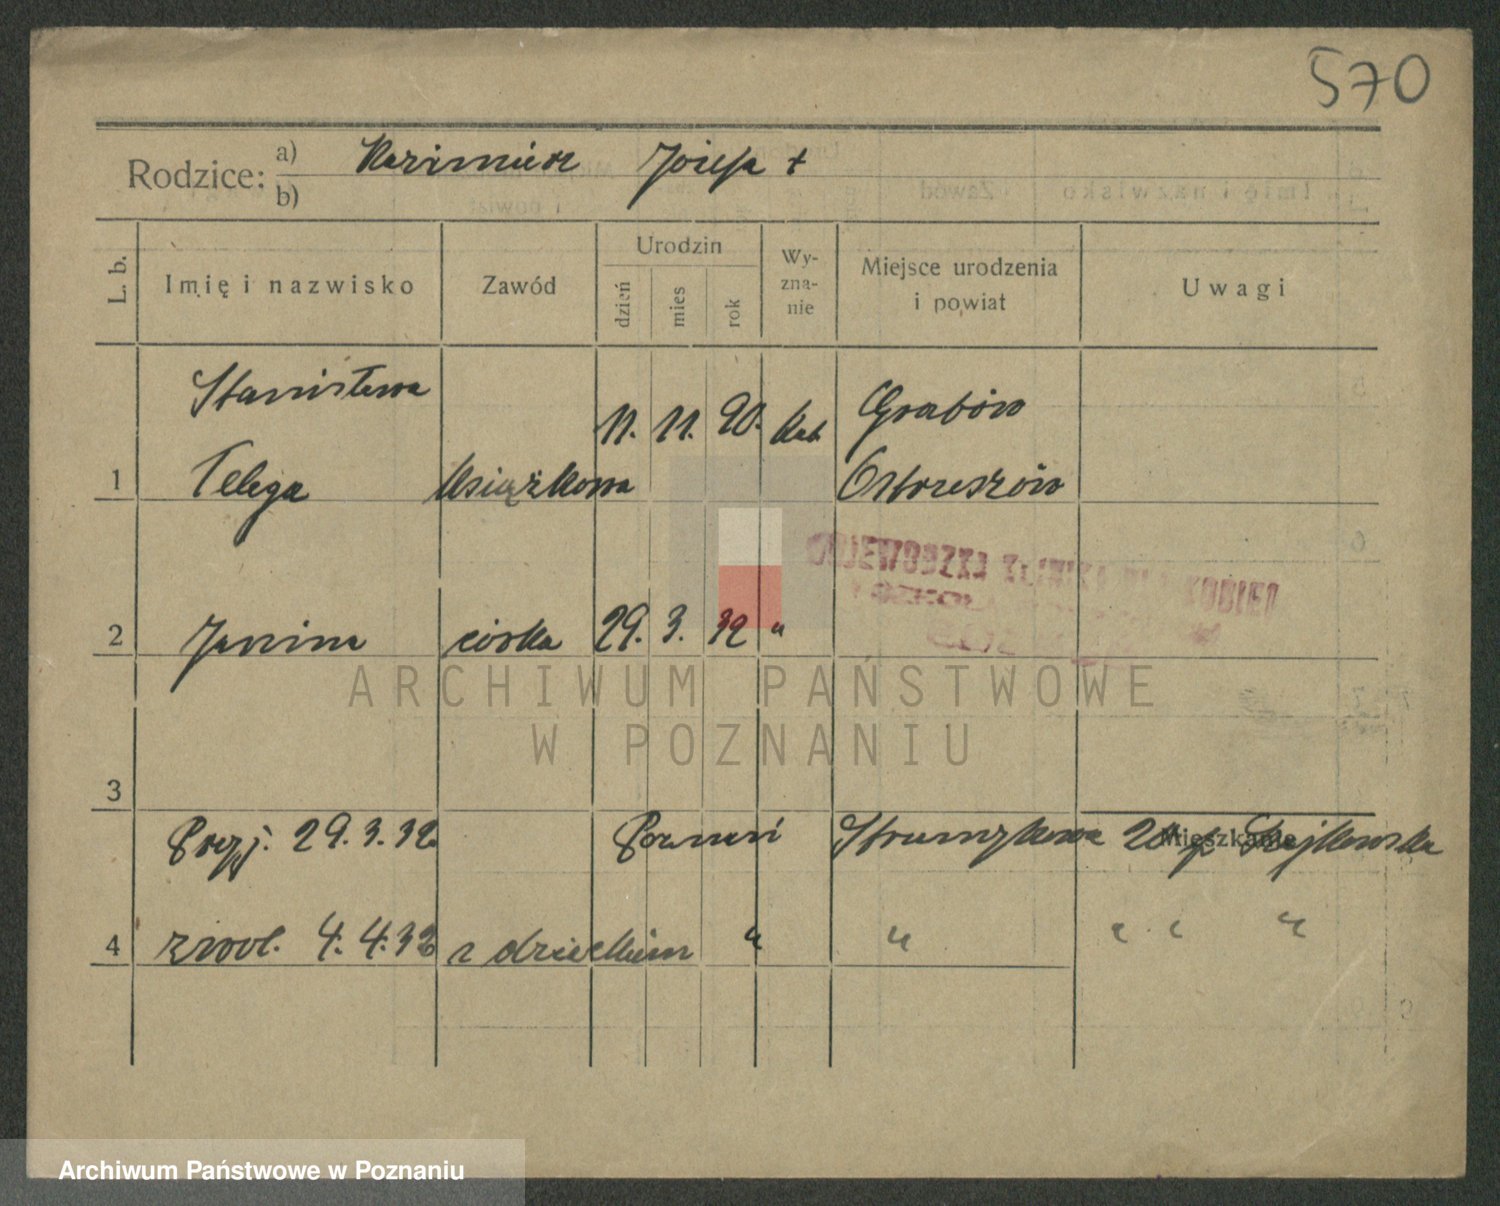 570
Rodzice: a) Kazimierz Józefa +
b)
L. b.
Imię i nazwisko
Zawód
Urodzin
dzień
mies
rok
Wy-
zna-
nie
Miejsce urodzenia
i powiat
Uwagi
Stanisława
11. 11. 90. kat Grabów
1 Telega książkowa Ostrzeszów
WOJEWÓDZKA KLINIKA DLA KOBIET
2 Janina córka 29. 3. 32 "
ARCHIWUM PAŃSTWOWE
W POZNANIU
3
Mieszkanie
Przyj. 29.3.32. Poznań Strumykowa 20
4 zwol. 4.4.32 z dzieckiem " " " " "
Archiwum Państwowe w Poznaniu